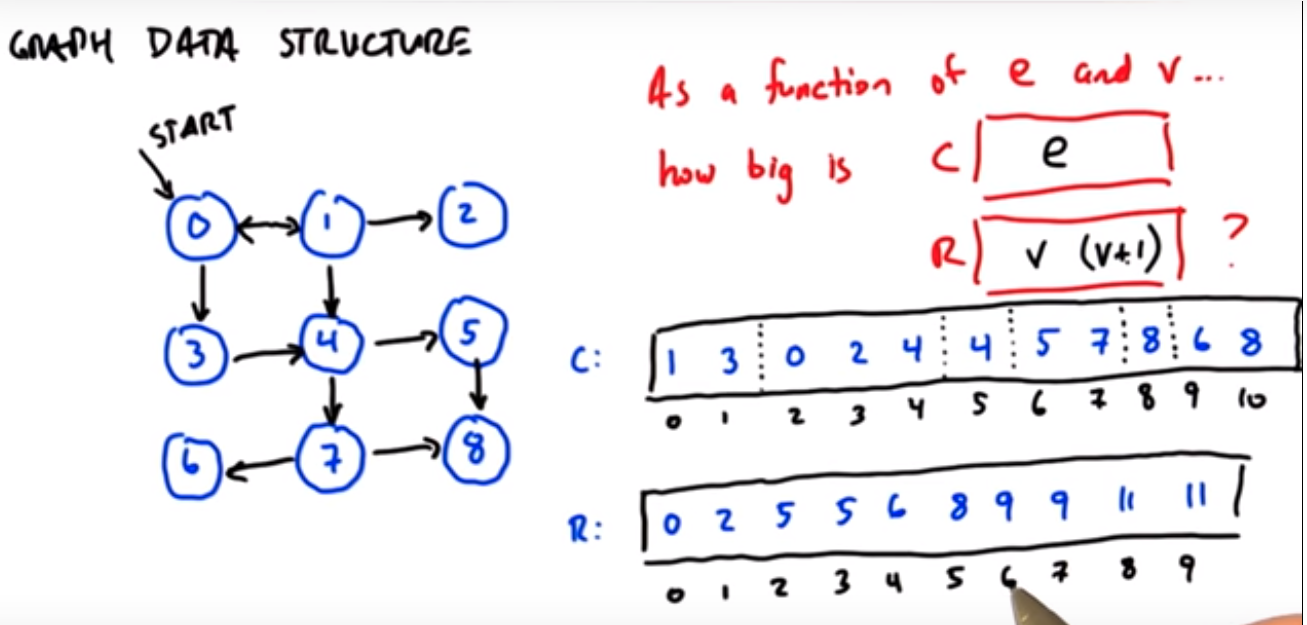 GRAPH DATA STRUCTURE
START
0 1 2
3 4 5
6 7 8
As a function of e and v...
how big is C e
R v (v+1) ?
C: 1 3 0 2 4 4 5 7 8 6 8
0 1 2 3 4 5 6 7 8 9 10
R: 0 2 5 5 6 8 9 9 11 11
0 1 2 3 4 5 6 7 8 9